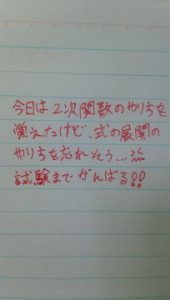 今日は2次関数のやり方を
覚えたけど、式の展開の
やり方を忘れそう…
試験までがんばる!!